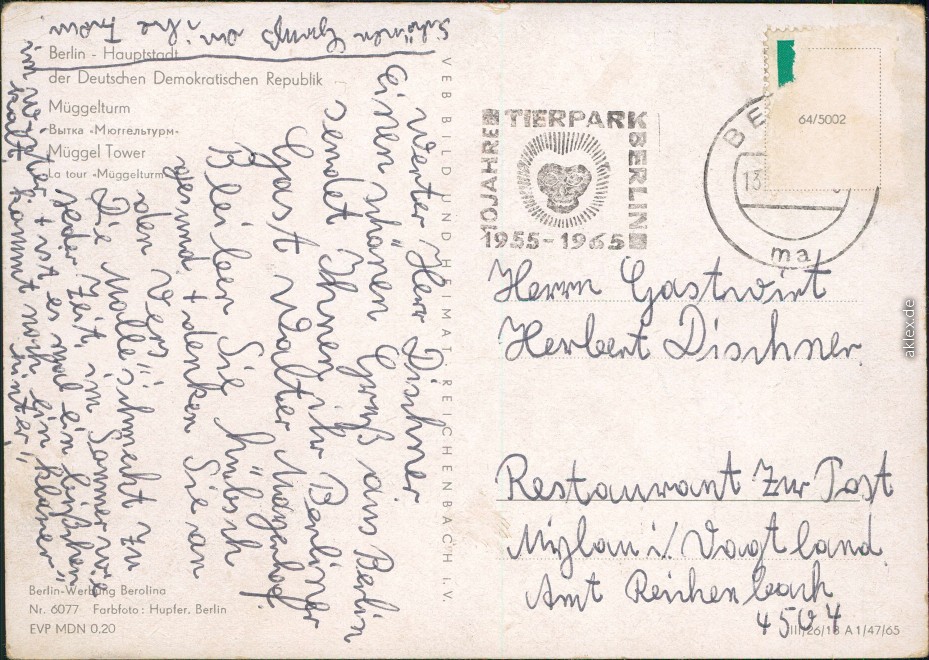 Schönen Gruß an ihre Frau
Berlin - Hauptstadt
der Deutschen Demokratischen Republik
Müggelturm
Вытка «Мюггельтурм»
Müggel Tower
La tour «Müggelturm»
Werter Herr Dischner
Einen schönen Gruß aus Berlin
sendet Ihnen ihr Berliner
Gast Walter
Bleiben Sie hübsch
gesund + denken Sie an
den Vers:
Die Molle schmeckt zu
jeder Zeit, im Sommer wie
im Winter + ist es mal ein bißchen
kalt kommt noch ein klarer hinter"
Berlin-Werbung Berolina
Nr. 6077 Farbfoto: Hupfer, Berlin
EVP MDN 0,20
VEB BILD UND HEIMAT REICHENBACH I. V.
10 JAHRE
TIERPARK
BERLIN
1955-1965
BE
13
ma
64/5002
Herrn Gastwirt
Herbert Dischner
Restaurant Zur Post
Mylau i/ Vogtland
Amt Reichenbach
4504
III/26/13 A 1/47/65
aklex.de